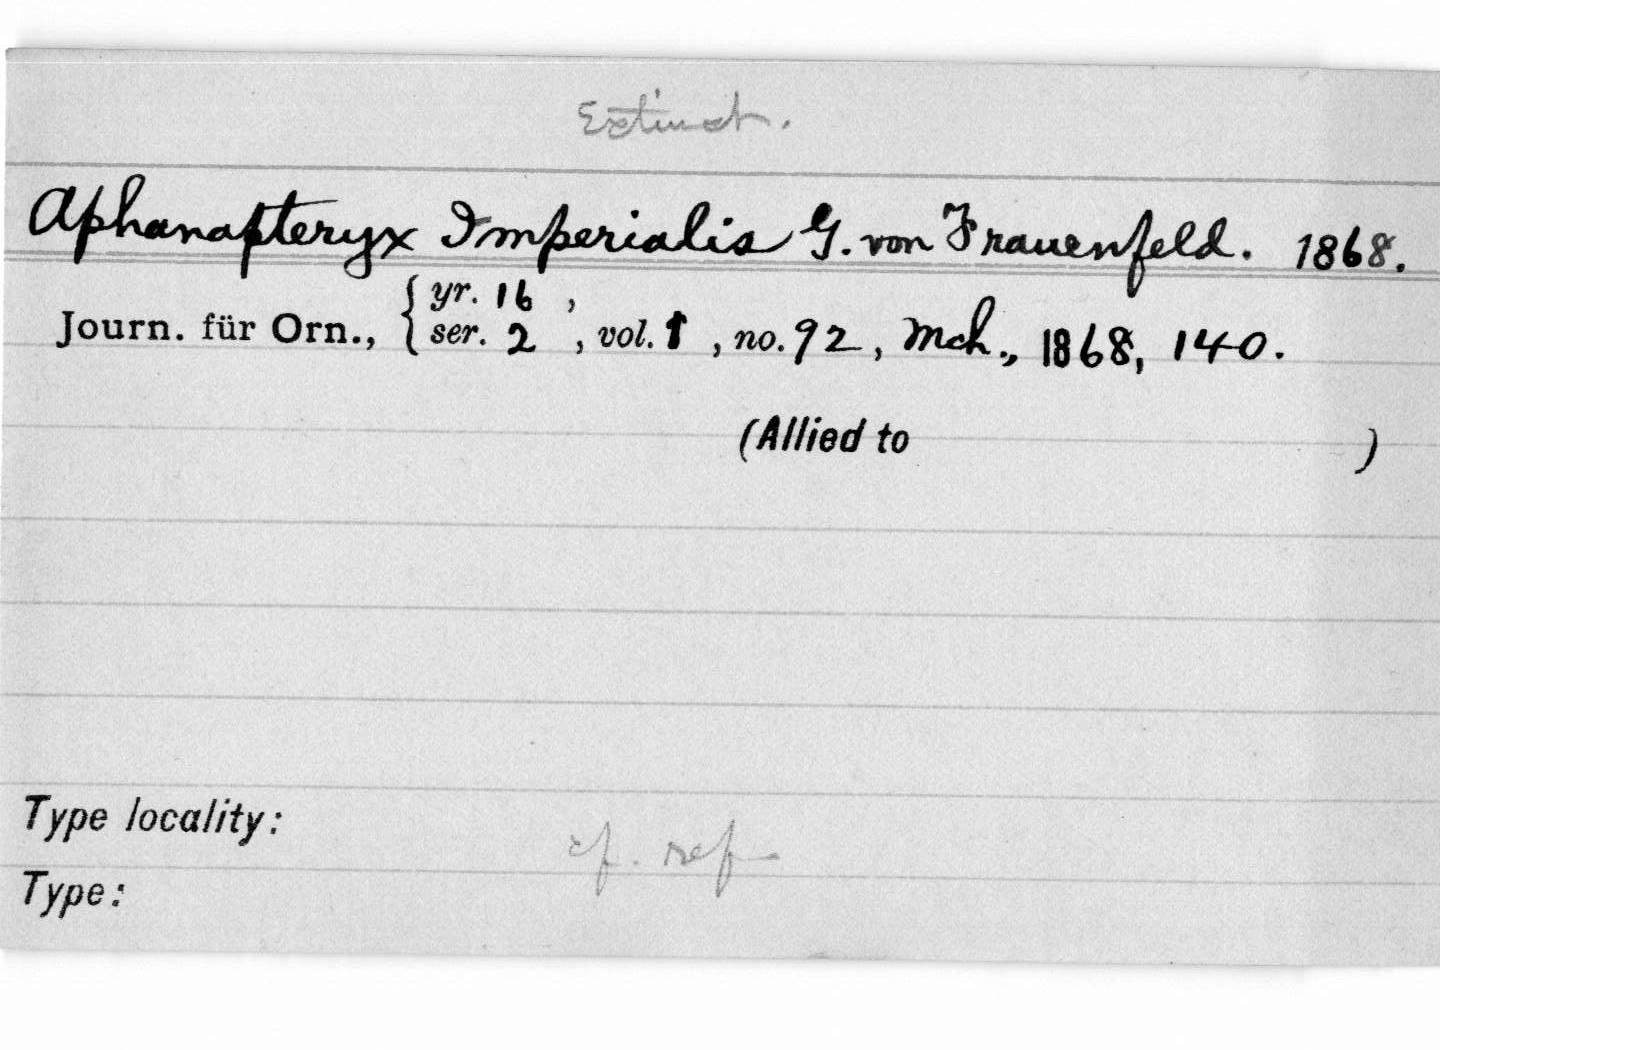 Extinct.
Aphanapteryx Imperialis G. von Frauenfeld. 1868.
yr. 16 ,
Journ. für Orn., { ser. 2 , vol. 1 , no. 92 , Mch., 1868, 140.
(Allied to )
Type locality:
cf. ref
Type: